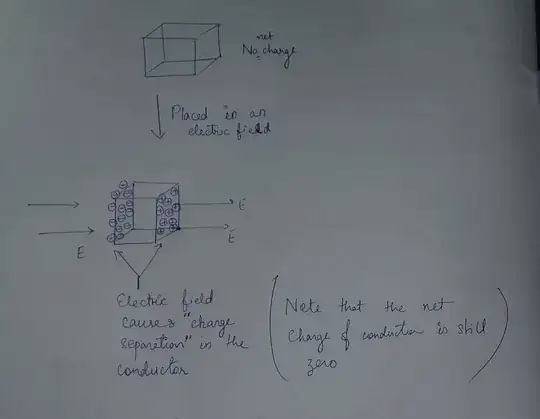 net
No charge
Placed in an
electric field
E
E
E
Electric field
causes "charge
separation" in the
conductor
Note that the net
charge of conductor is still
zero